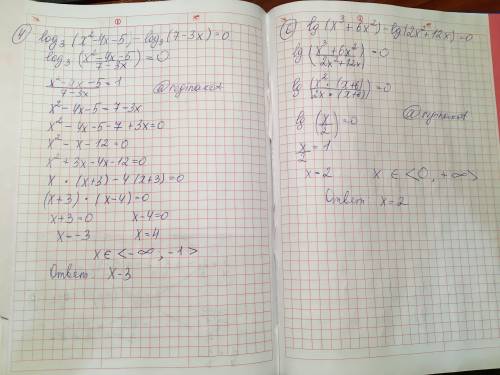 4) log₃ (x²-4x-5) - log₃ (7-3x)=0
log₃ (x²-4x-5 / 7-3x) = 0
x²-4x-5 / 7-3x = 1
x²-4x-5=7-3x
x²-4x-5-7+3x=0
x²-x-12=0
x²+3x-4x-12=0
x · (x+3)-4(x+3)=0
(x+3) · (x-4)=0
x+3=0 x-4=0
x=-3 x=4
x ∈ <-∞, -1>
Ответ x-3
lg (x³+6x²)-lg(2x²+12x)=0
lg (x³+6x² / 2x²+12x) = 0
lg (x² · (x+6) / 2x · (x+6)) = 0
lg (x/2) = 0
x/2 = 1
x=2 x ∈ <0, +∞>
Ответ x=2